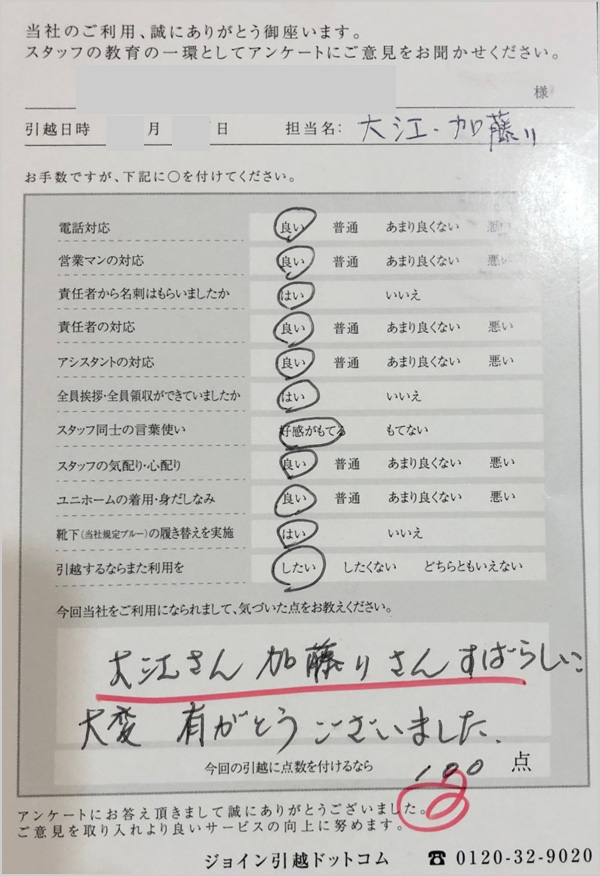 当社のご利用、誠にありがとう御座います。
スタッフの教育の一環としてアンケートにご意見をお聞かせください。
様
引越日時 月 日 担当名: 大江・加藤リ
お手数ですが、下記に〇を付けてください。
電話対応 良い 普通 あまり良くない 悪い
営業マンの対応 良い 普通 あまり良くない 悪い
責任者から名刺はもらいましたか はい いいえ
責任者の対応 良い 普通 あまり良くない 悪い
アシスタントの対応 良い 普通 あまり良くない 悪い
全員挨拶・全員領収ができていましたか はい いいえ
スタッフ同士の言葉使い 好感がもてる もてない
スタッフの気配り・心配り 良い 普通 あまり良くない 悪い
ユニホームの着用・身だしなみ 良い 普通 あまり良くない 悪い
靴下(当社規定ブルー)の履き替えを実施 はい いいえ
引越するならまた利用を したい したくない どちらともいえない
今回当社をご利用になられまして、気づいた点をお教えください。
大江さん 加藤リさん すばらしい
大変 有がとうございました.
今回の引越に点数を付けるなら 100 点
アンケートにお答え頂きまして誠にありがとうございました。
ご意見を取り入れより良いサービスの向上に努めます。
ジョイン引越ドットコム ☎ 0120-32-9020